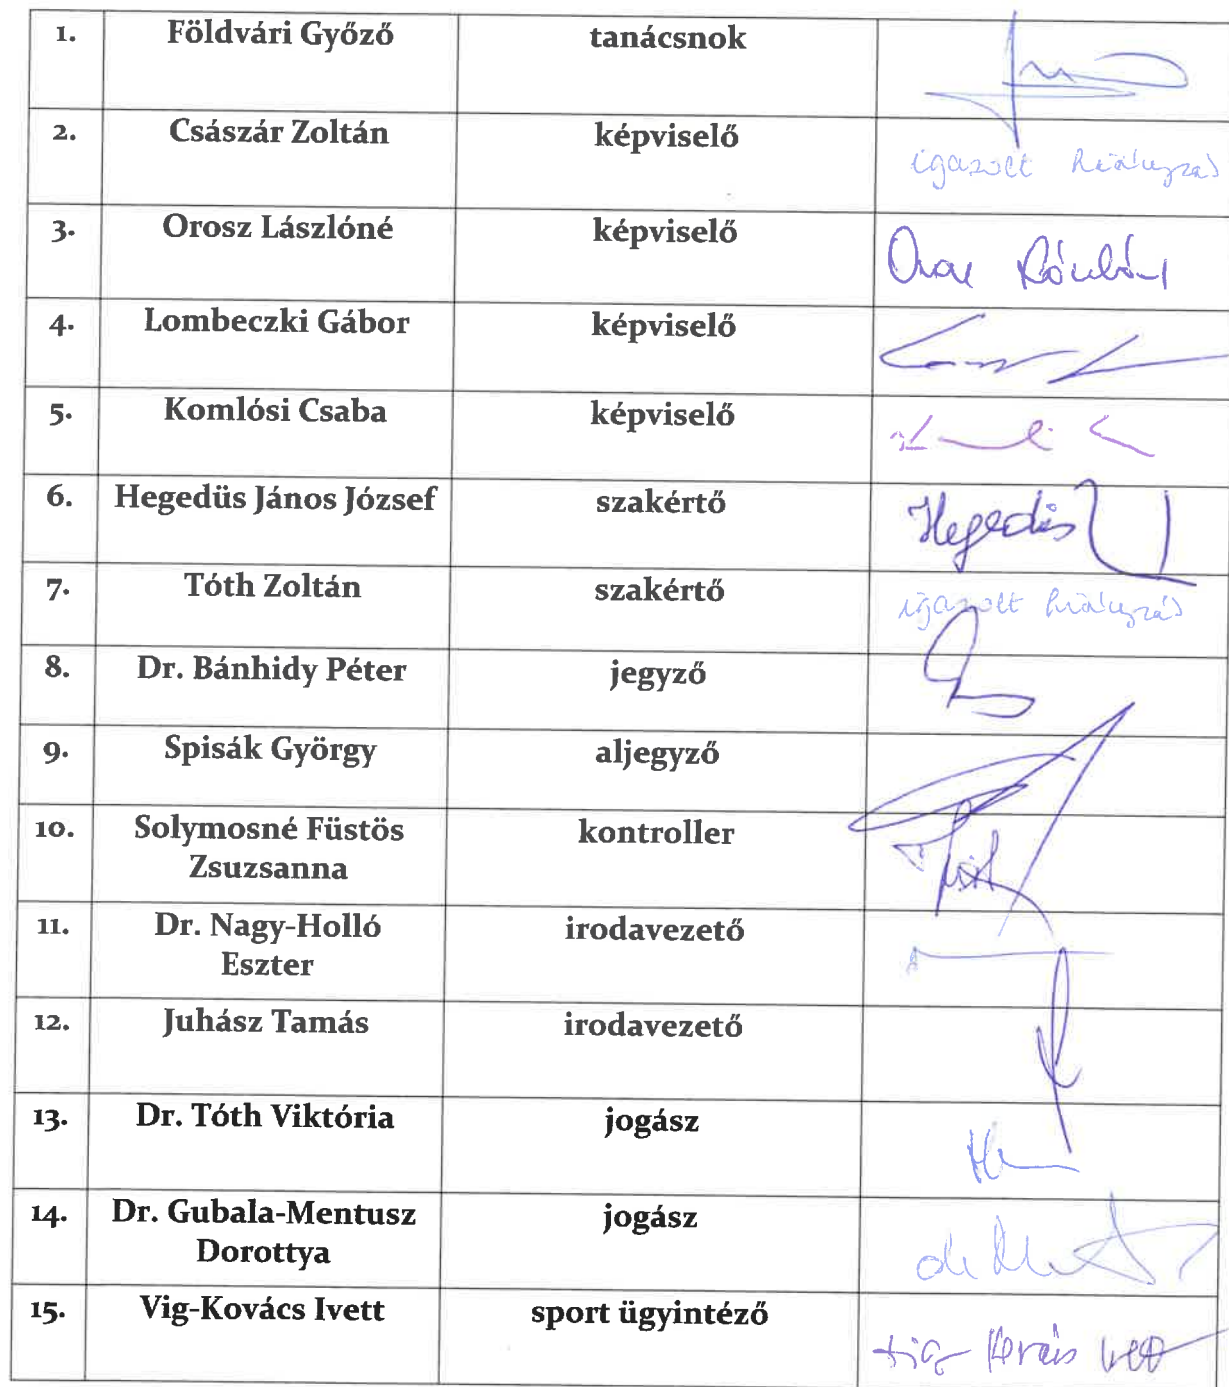 1. Földvári Győző tanácsnok
2. Császár Zoltán képviselő igazolt hiányzás
3. Orosz Lászlóné képviselő
4. Lombeczki Gábor képviselő
5. Komlósi Csaba képviselő
6. Hegedüs János József szakértő Hegedüs
7. Tóth Zoltán szakértő igazolt hiányzás
8. Dr. Bánhidy Péter jegyző
9. Spisák György aljegyző
10. Solymosné Füstös kontroller
Zsuzsanna
11. Dr. Nagy-Holló irodavezető
Eszter
12. Juhász Tamás irodavezető
13. Dr. Tóth Viktória jogász
14. Dr. Gubala-Mentusz jogász
Dorottya
15. Vig-Kovács Ivett sport ügyintéző